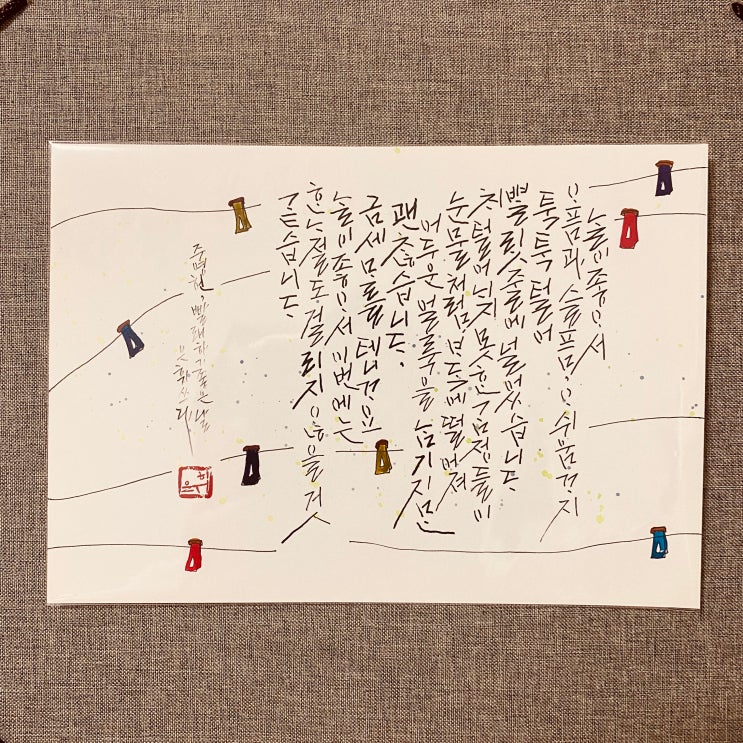 날이 좋아서
아픔과 슬픔, 아쉬움까지
툭툭 털어
빨랫줄에 널었습니다.
채 털어내지 못한 감정들이
눈물처럼 바닥에 떨어져
어두운 얼룩을 남기지만
괜찮습니다.
금세 마를 테니까요
날이 좋아서 이번에는
한나절도 걸리지 않을 것
같습니다.
주명현, 빨래하기 좋은 날
쓰다